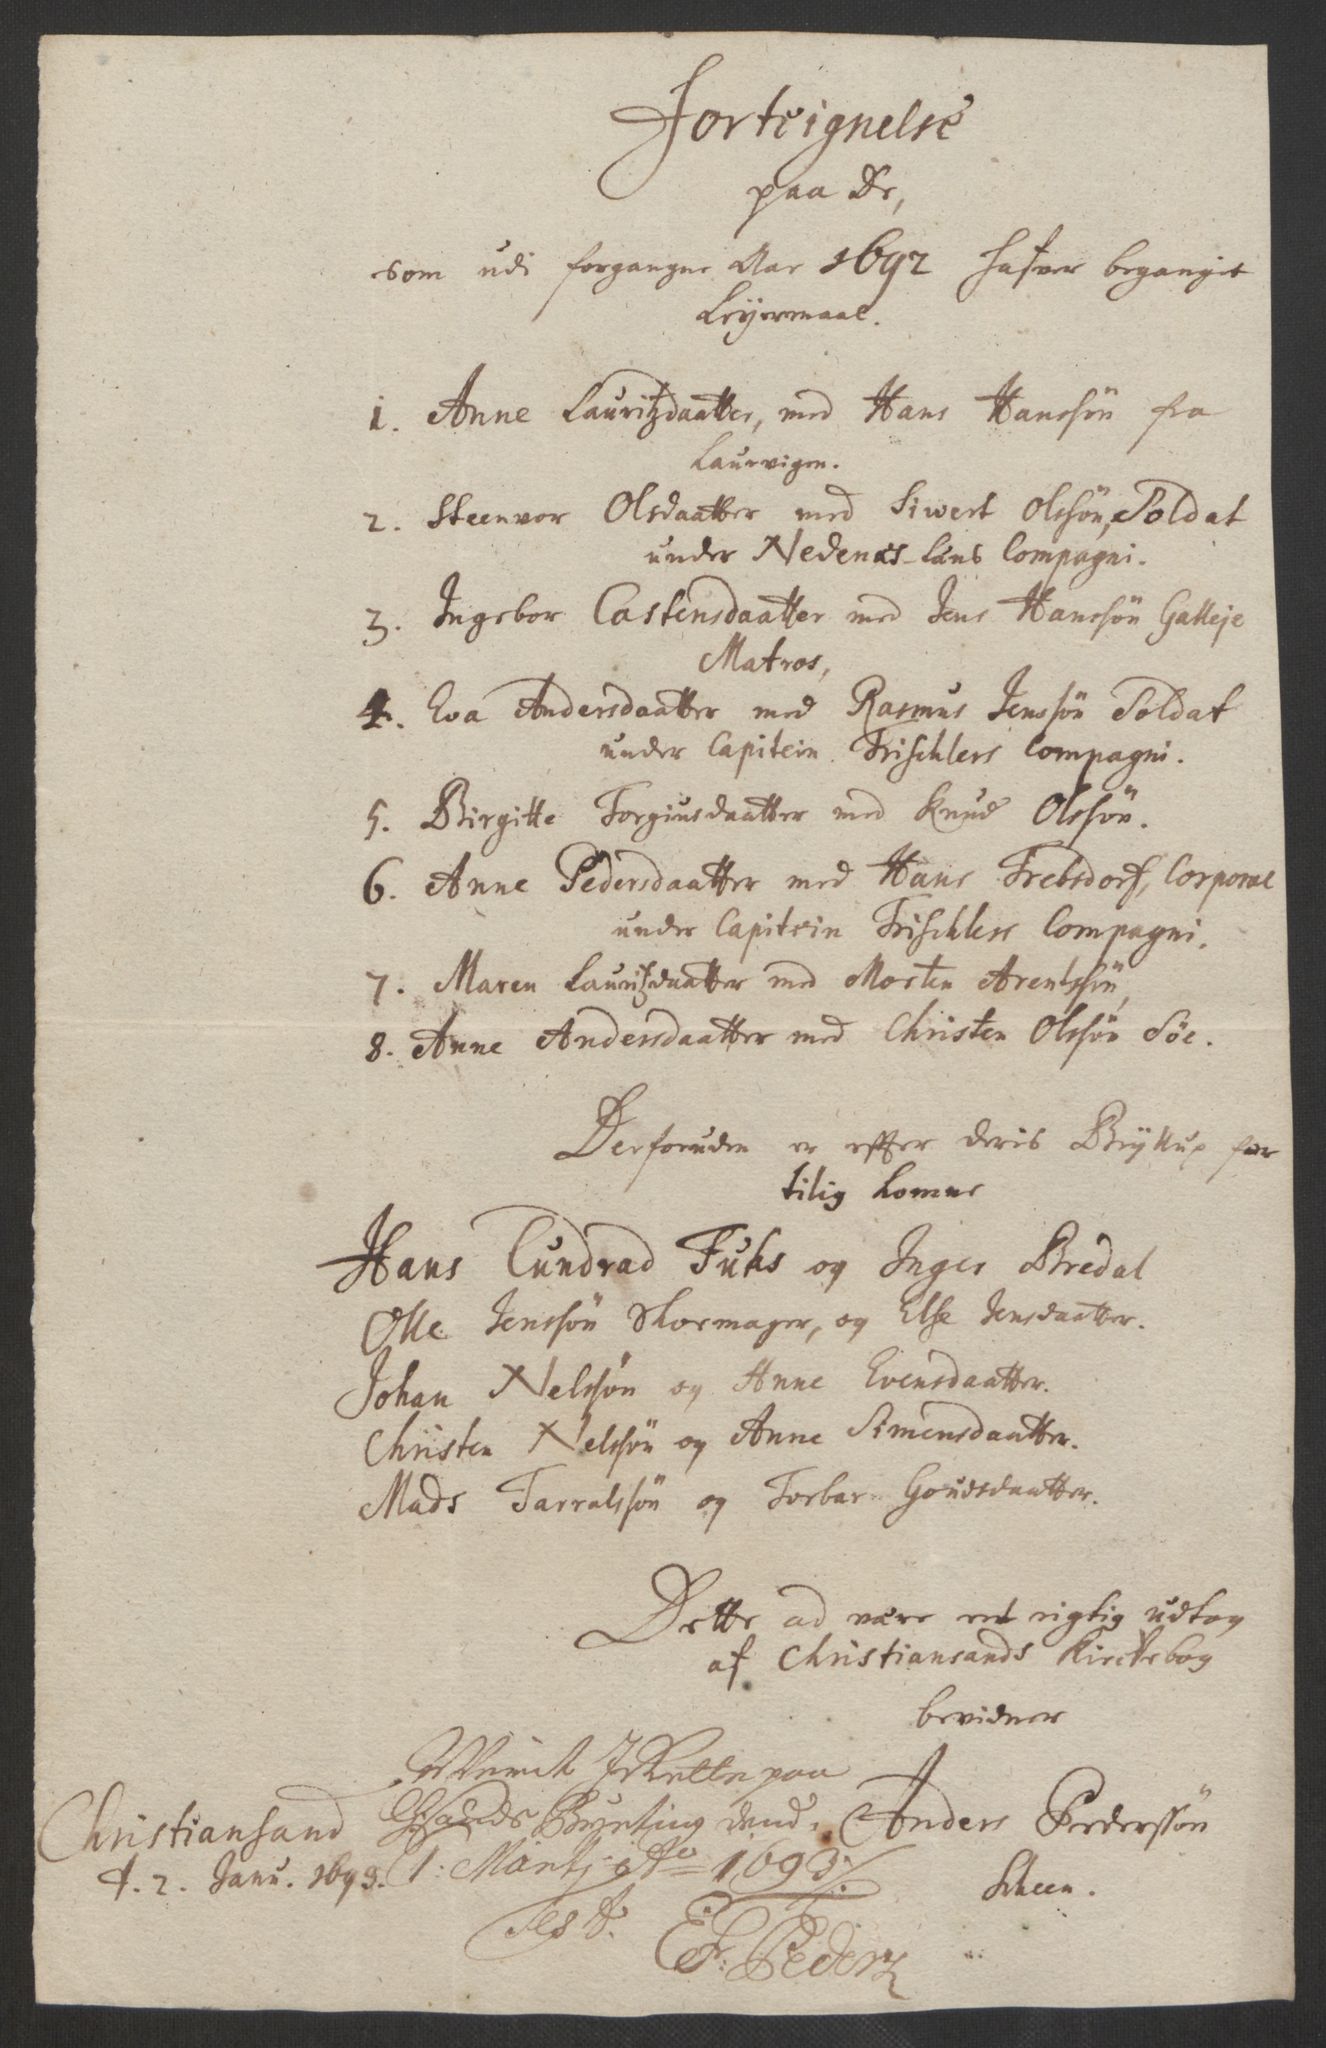 Forteignelse
paa De,
som udi forgangne Aar 1692 hafver beganget
Leyermaal.
1. Anne Lauritzdaatter, med Hans Hanssön fra
Laurvigen.
2. Steenvor Olsdaatter med Siwert Olssön, Soldat
under Nedenæs-Läns Compagni.
3. Ingebor Castensdaatter med Jens Hanssön Galleje
Matros,
4. Eva Andersdaatter med Rasmus Jenssön Soldat
under Capitein Frischlers Compagni.
5. Birgitte Torgiusdaatter med Knud Olssön.
6. Anne Pedersdaatter med Hans Trebsdorf, Corporal
under Capitein Frischlers Compagni.
7. Maren Lauritzdaatter med Morten Arentssön,
8. Anne Andersdaatter med Christen Olssön Söe.
Derforuden er effter deris Bryllup for
tilig komne
Hans Cundrad Fuhs og Inger Bredal
Olle Jenssön Skoemager, og Else Jensdaatter.
Johan Nelssön og Anne Evensdaatter.
Christen Nelssön og Anne Simensdaatter.
Mads Tarralssön og Torbar Goudsdaatter.
Dette ad være ret rigtig udtog
af Christiansands Kirckebog
bevidner
Anders Pederssön
Scheen.
Christiansand
d. 2. Janu. 1693.
Wærit J Rette paa
Byeting dend
1: Martij Ao 1693
Test.
Pederz